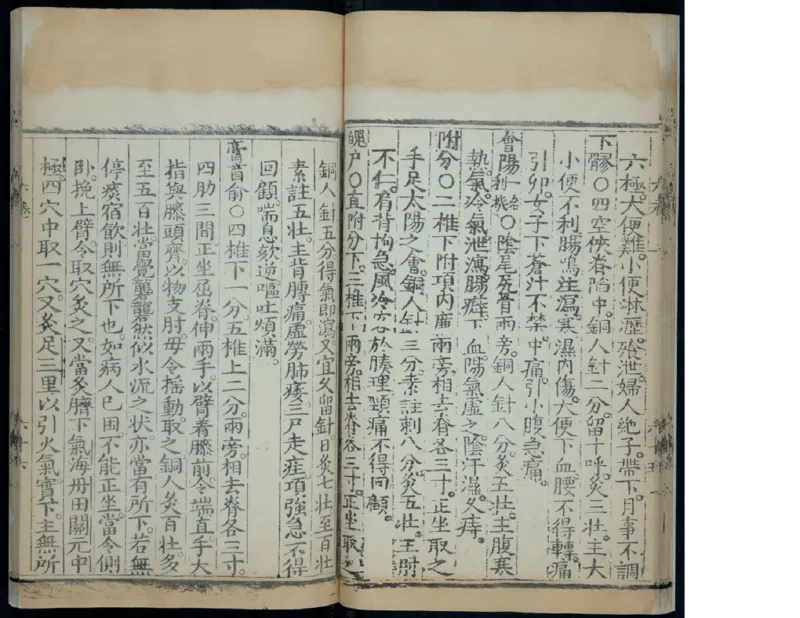 六極。大便難。小便淋瀝。飱泄婦人絶子。帶下。月事不調
下髎〇四空俠脊陷中。銅人針二分留十呼。灸三壯。主大
小便不利腸鳴注瀉。寒濕內傷。大便下血。腰不得轉。痛
引卵。女子下蒼汁不禁。中痛引小腹急痛。
會陽一名利機〇陰尾尻骨兩旁。銅人針八分。灸五壯。主腹寒
熱氣。冷氣泄瀉。腸癖下血。陽氣虛乏陰汗濕。久痔。
附分〇二椎下附項內廉兩旁相去脊各三寸。正坐取之
手足太陽之會。銅人針三分。素註刺八分。灸五壯。主肘
不仁。肩背拘急。風冷客於腠理。頸痛不得回顧。
魄戶〇直附分下。三椎下兩旁。相去脊各三寸。正坐取之
銅人針五分得氣即瀉。又宜久留針。日灸七壯。至百壯
素註五壯。主背膊痛。虛勞肺痿。三尸走疰。項強急不得
回顧。喘息欬逆。嘔吐煩滿。
膏肓俞〇四椎下一分五椎上二分。兩旁。相去脊各三寸。
四肋三間。正坐屈脊。伸兩手。以臂着膝前。令端直。手大
指與膝頭齊。以物支肘。毋令揺動。取之。銅人灸百壯。多
至五百壯。當覺礱礱然似水流之狀。亦當有所下。若無
停痰宿飲。則無所下也。如病人已困。不能正坐。當令側
臥。挽上臂。令取穴灸之。又當灸臍下氣海丹田關元中
極。四穴中取一穴。又灸足三里。以引火氣實下。主無所